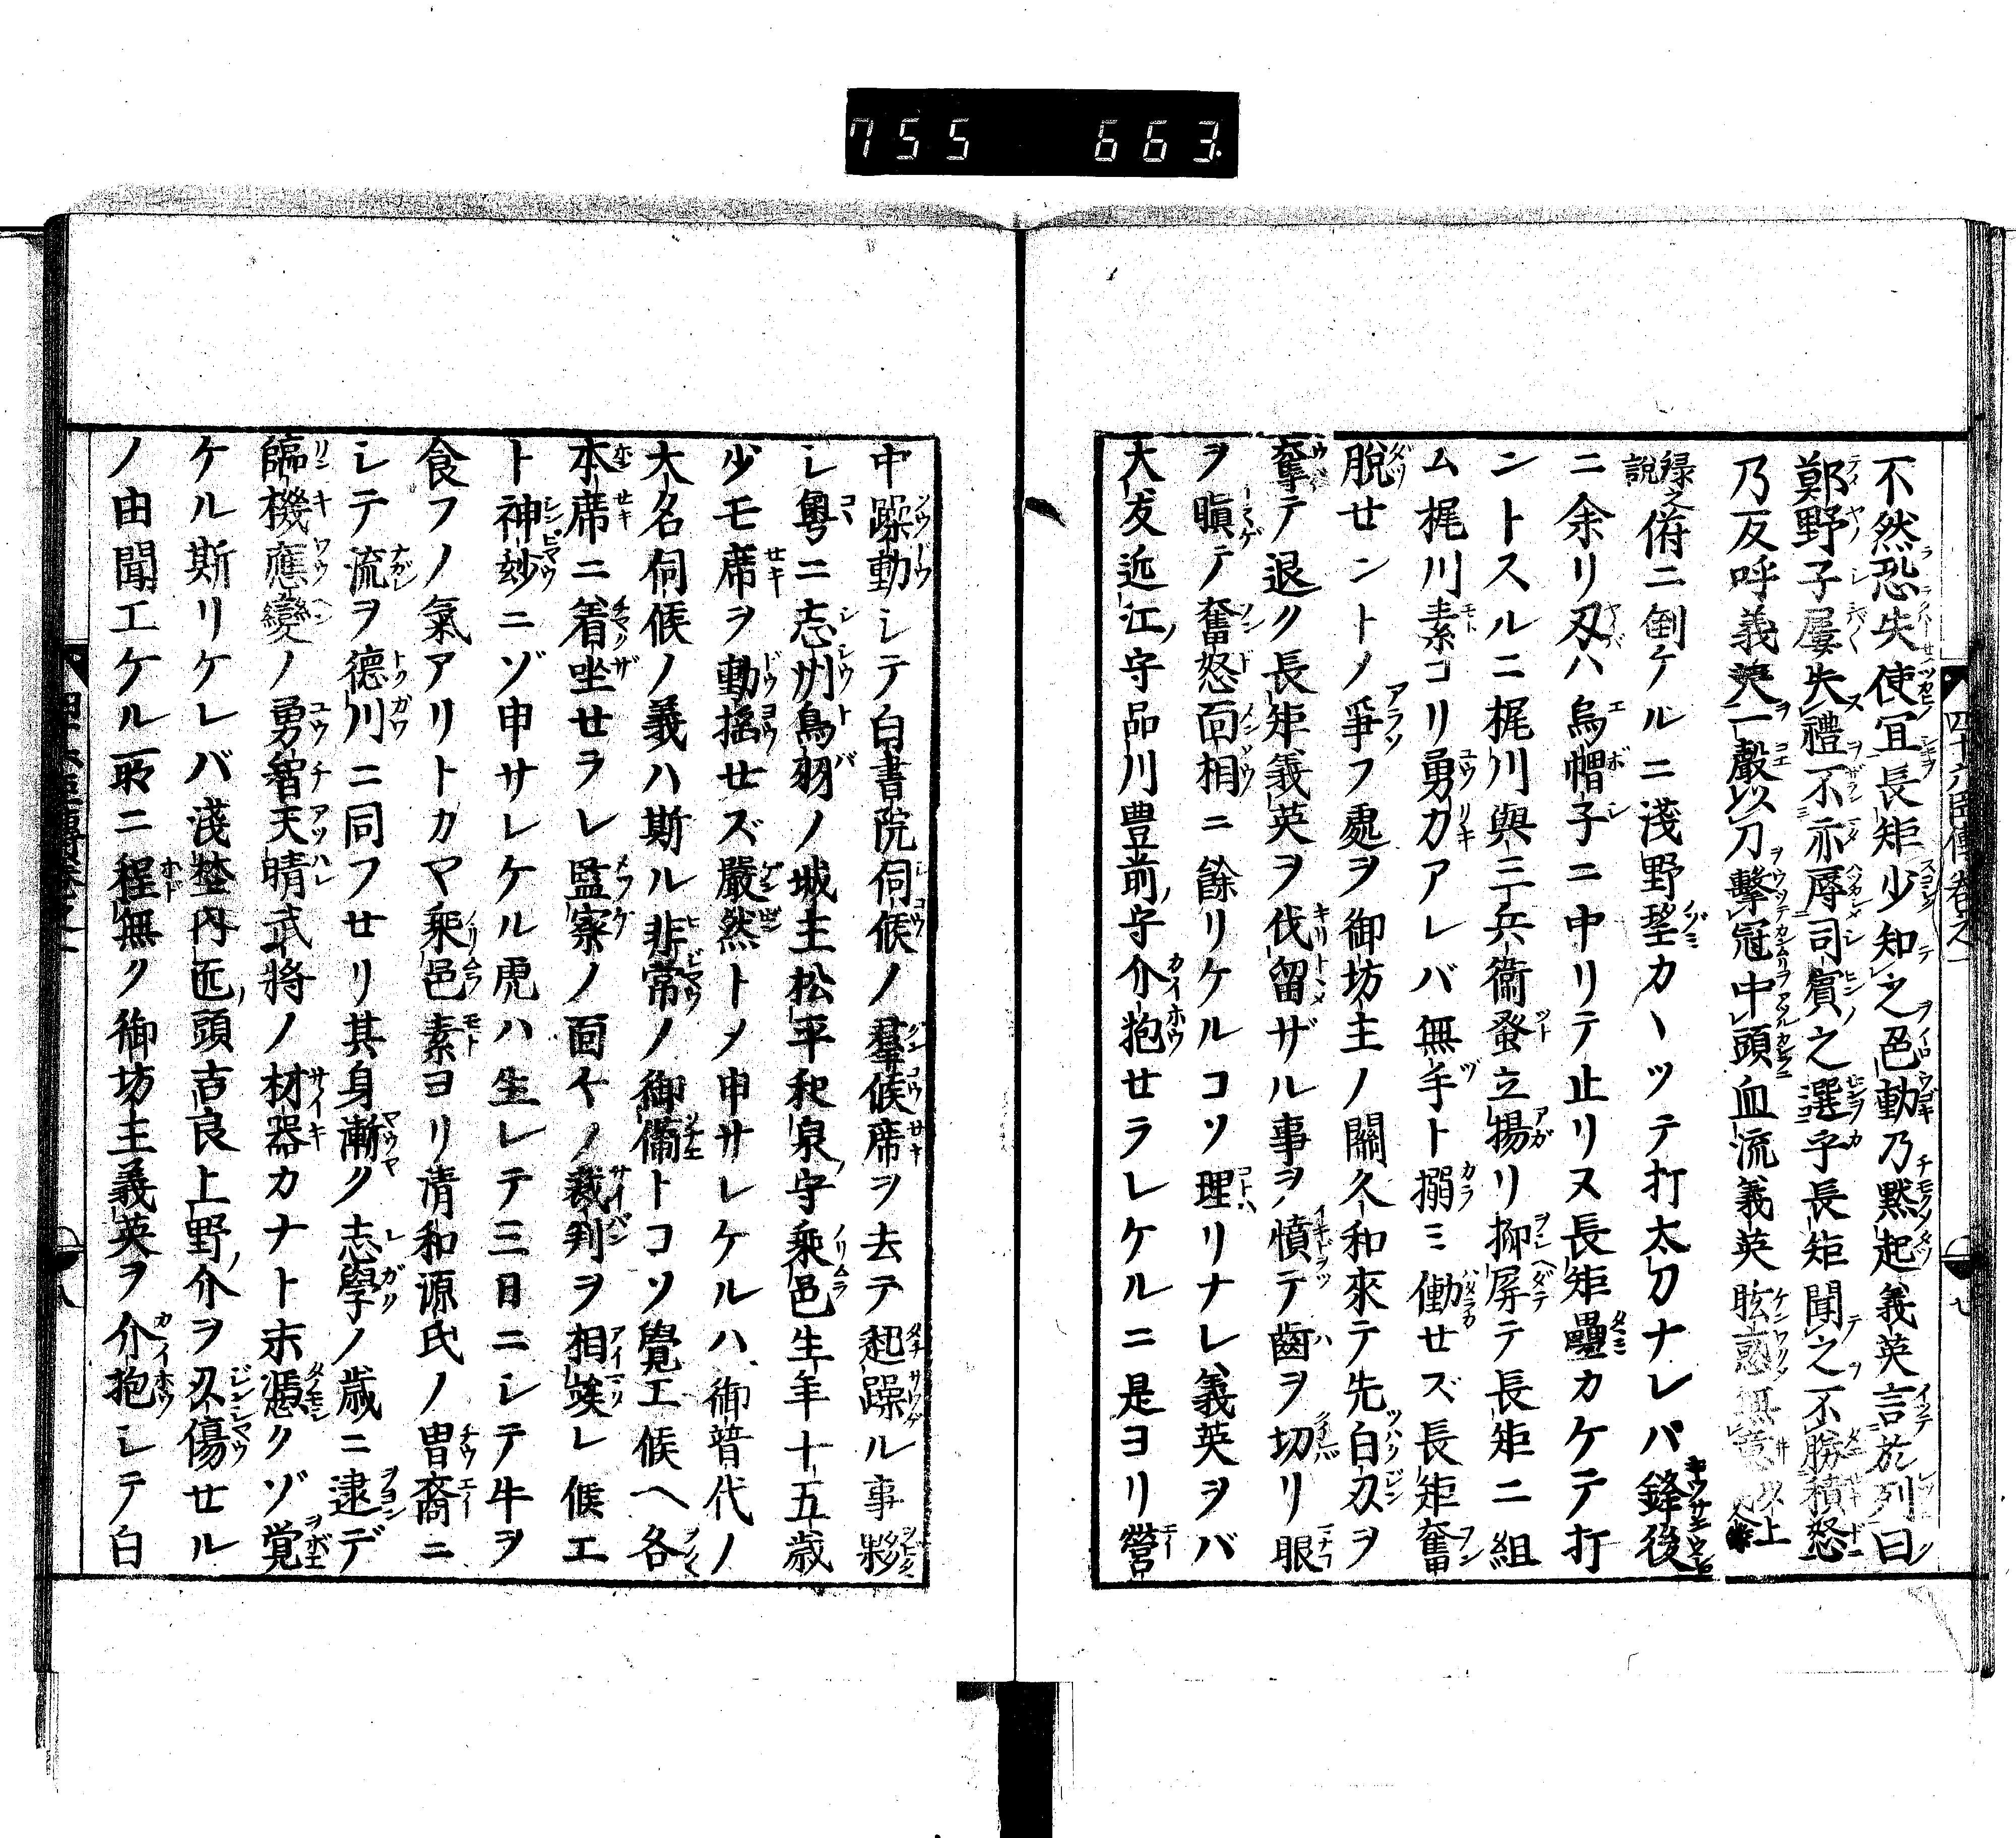 755 663
四十六臣傳卷之一
不然恐失使冝長矩少知之色動乃默起義英言於列曰
鄭野子屢失禮不亦辱司賓之選乎長矩聞之不勝積怒
乃反呼義英一聲以刀擊冠中頭血流義英眩惑無意以上
録之説俯ニ倒ケルニ淺野望カヽツテ打太刀ナレバ鋒後
ニ余リ刃ハ烏帽子ニ中リテ止リヌ長矩疊カケテ打
ントスルニ梶川與三兵衞蚤立揚リ抑屏テ長矩ニ組
ム梶川素コリ勇力アレバ無手ト搦ミ働セズ長矩奮
脱せントメ爭フ處ヲ御坊主ノ關久和來テ先白刃ヲ
奪テ退ク長矩義英ヲ伐留ザル事ヲ憤テ齒ヲ切リ眼
ヲ瞋テ奮怒面相ニ餘リケルコソ理リナレ義英ヲバ
大友近江ノ守品川豊前ノ守介抱せラレケルニ是ヨリ營
中躁動シテ白書院伺候ノ羣候席ヲ去テ起躁ル事夥
シ粤ニ志州鳥羽ノ城主松平和泉ノ守乘邑生年十五歳
少モ席ヲ動揺せズ嚴然トメ申サレケルハ御普代ノ
大名伺候ノ義ハ斯ル非常ノ御備トコソ覺エ候ヘ各
本席ニ着坐せラレ監察ノ面々ノ裁判ヲ相竢レ候エ
ト神妙ニゾ申サレケル虎ハ生レテ三日ニシテ牛ヲ
食フノ氣アリトカマ乘邑素ヨリ清和源氏ノ冑裔ニ
シテ流ヲ德川ニ同フせリ其身漸ク志學ノ歳ニ逮デ
臨機應變ノ勇智天晴武將ノ材器カナト末憑クゾ覚
ケル斯リケレバ淺埜内匠ノ頭吉良上野ノ介ヲ刃傷せル
ノ由聞エケル所ニ程無ク御坊主義英ヲ介抱シテ白